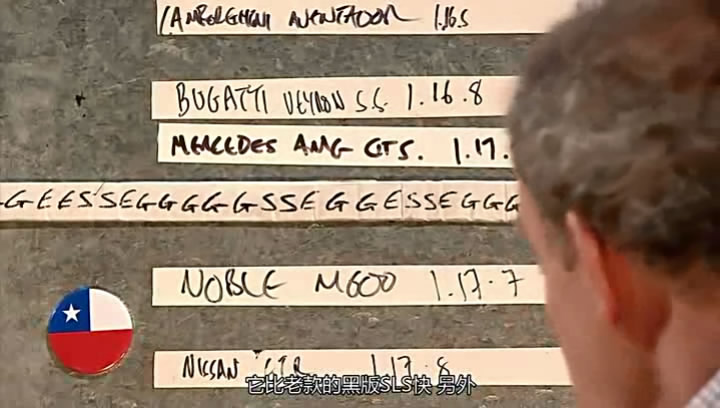 LAMBORGHINI AVENTADOR 1.16.5
BUGATTI VEYRON S.S. 1.16.8
MERCEDES AMG GTS. 1.17.
GEESSEGGGGGSSEGGESSEGGG
NOBLE M600 1.17.7
NISSAN GTR 1.17.8
它比老款的黑版SLS快 另外